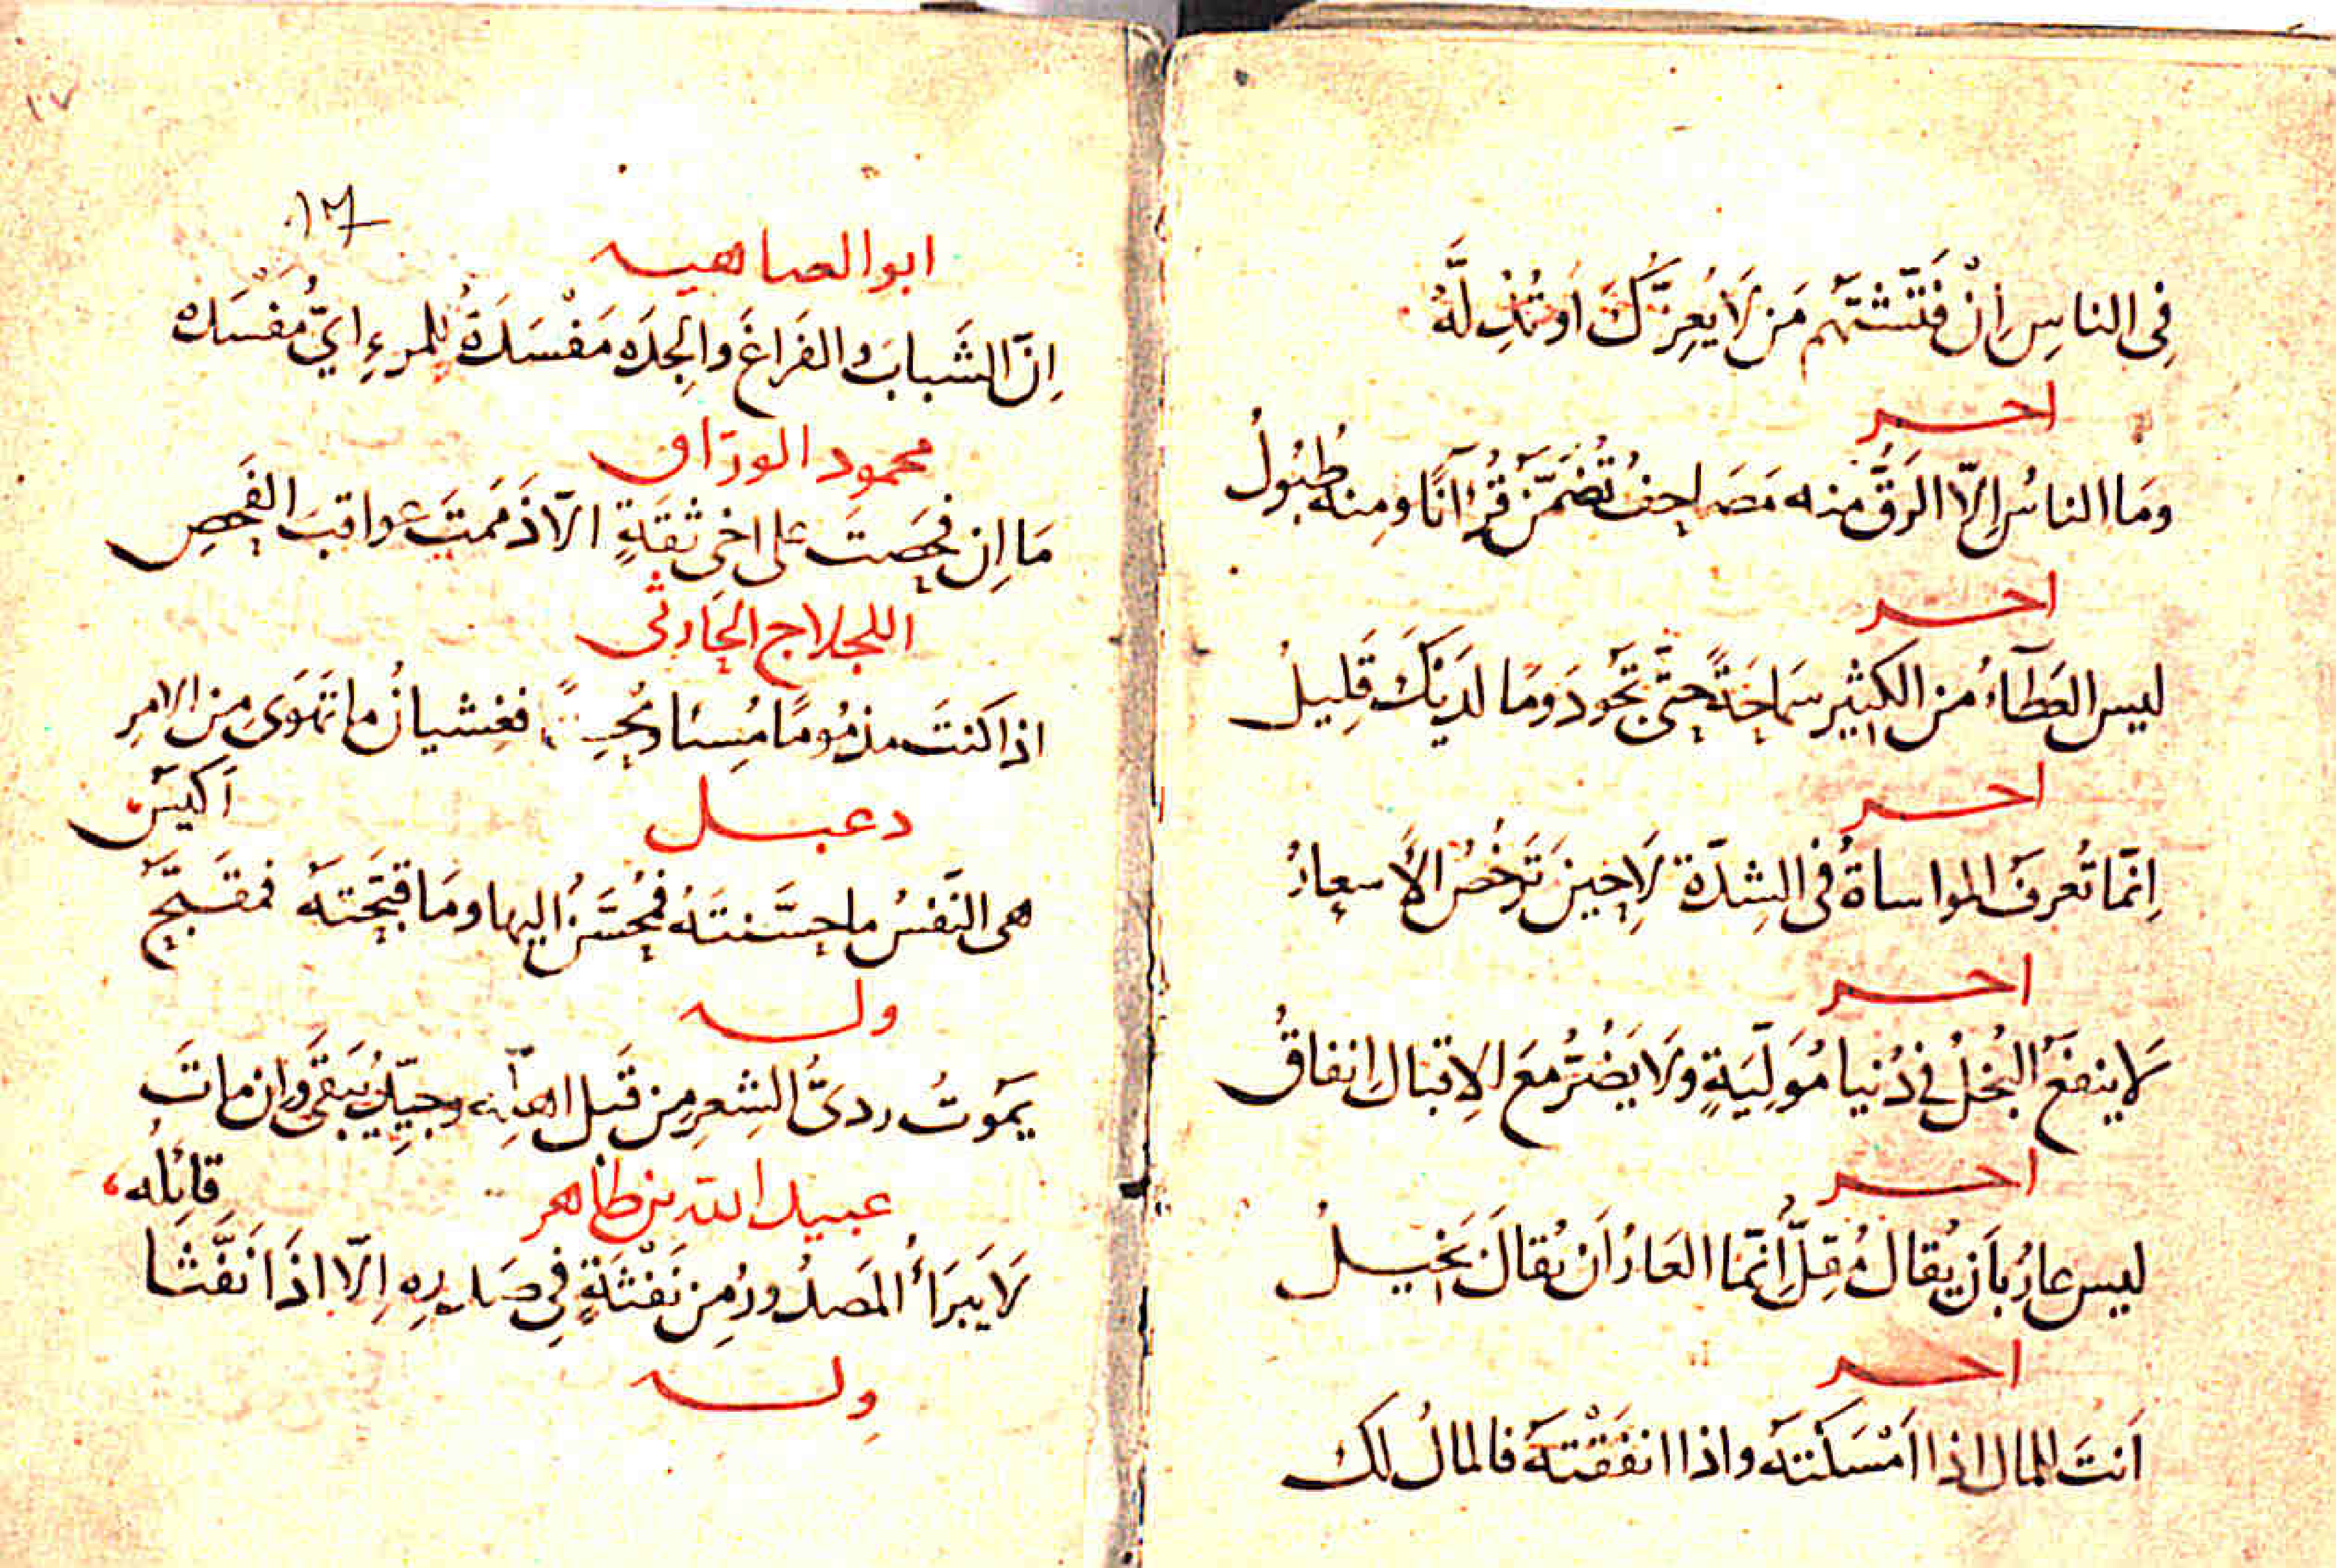 فِى الناسِ اِنْ فَتَّشتَهم مَن لَا يُعِزُّكَ اَو تُذِلَّهُ
اخر
ومَا الناسُ اِلّا الرَقُّ منه مَصَاحِفُ تُضَمَّنُ قُرْآنًا ومِنه طُبُولُ
اخر
ليس العَطَآءُ من الكثيرِ سَمَاحَةً حتَّى تَجُودَ ومَا لدَيْكَ قَلِيلُ
اخر
اِنَّما تُعرفُ المواساةُ فى الشِدّة لَا حِينَ تَرخُصُ الأَسعارُ
اخر
لَا ينفعُ البُخلُ فى دُنيا مُوَلّيَةٍ ولَا يَضُرُّ معَ الاِقبالِ اِنفاقُ
اخر
ليس عارٌ بأَن يُقالَ مُقِلٌّ اِنّمَا العَارُ اَن يُقالَ بَخيلُ
اخر
اَنتَ للمال اذا اَمْسَكْتَهُ واذا انفَقْتَهُ فالمالُ لَكَ
١٧
ابو العتاهيه
اِنّ الشَبابَ والفَرَاغَ والجِدَه مَفْسَدَةٌ للمرءِ اىُّ مَفْسَدَه
محمود الورّاق
مَا اِن فحَصتَ على اخى ثقَةٍ الّا ذَممَتَ عواقبَ الفَحصِ
اللجلاج الحارثى
اذا كنتَ مذمُومًا مُسِئا ومُحسِنًا فغِشيانُ ما تَهوَى من الامرِ
اَكيَسُ
دعبل
هى النَفسُ ما حسَّنتَهُ فمُحَسَّنٌ اليها ومَا قبّحَتهُ فمقَبَّحُ
وله
يمَوتُ ردىُّ الشِعرِ مِن قَبل اهلِه وجيِّدُه يَبقَى واِن ماتَ
قائلُه
عبيد الله بن طاهر
لَا يَبرَأُ المَصدُورُ مِن نَفْثَةٍ فِى صَدرِهِ اِلّا اذَا نَفَّثَا
وله